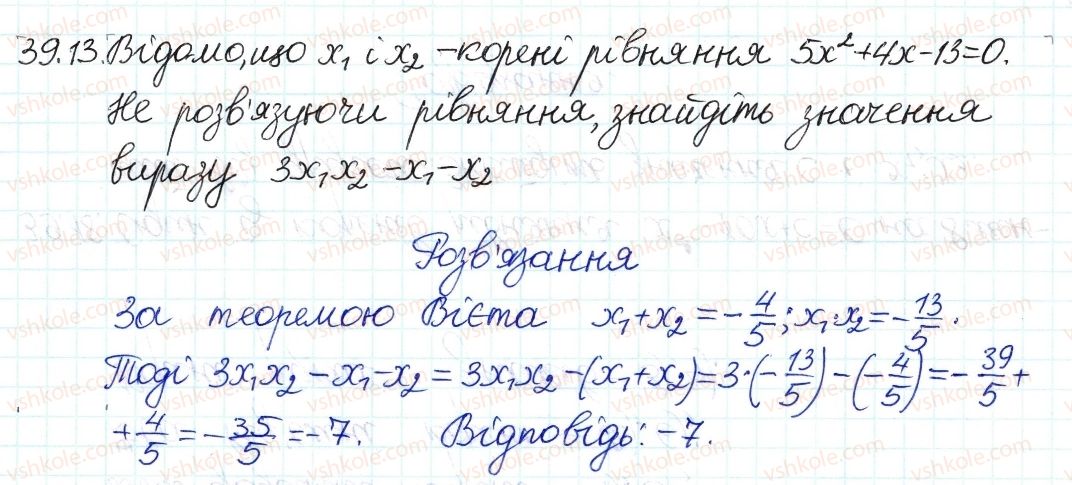 39.13. Відомо, що x₁ і x₂ – корені рівняння 5x²+4x-13=0.
Не розв'язуючи рівняння, знайдіть значення
виразу 3x₁x₂ -x₁-x₂
Розв'язання
За теоремою Вієта x₁+x₂ = -4/5; x₁·x₂ = -13/5.
Тоді 3x₁x₂ -x₁-x₂ = 3x₁x₂ -(x₁+x₂) = 3·(-13/5) -(-4/5) = -39/5 +
+ 4/5 = -35/5 = -7. Відповідь: -7.